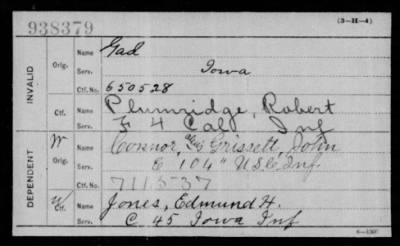 938379
(3-H-4)
INVALID
Orig.
Name Gad
Serv. Iowa
Ctf. No. 650528
Ctf.
Name Plumridge, Robert
Serv. F 4 Cal Inf
DEPENDENT
W
Orig.
Name Connor, Grissett, John
Serv. E 104" U.S.C. Inf.
Ctf. No. 711537
W
Ctf.
Name Jones, Edmund H.
Serv. C 45 Iowa Inf